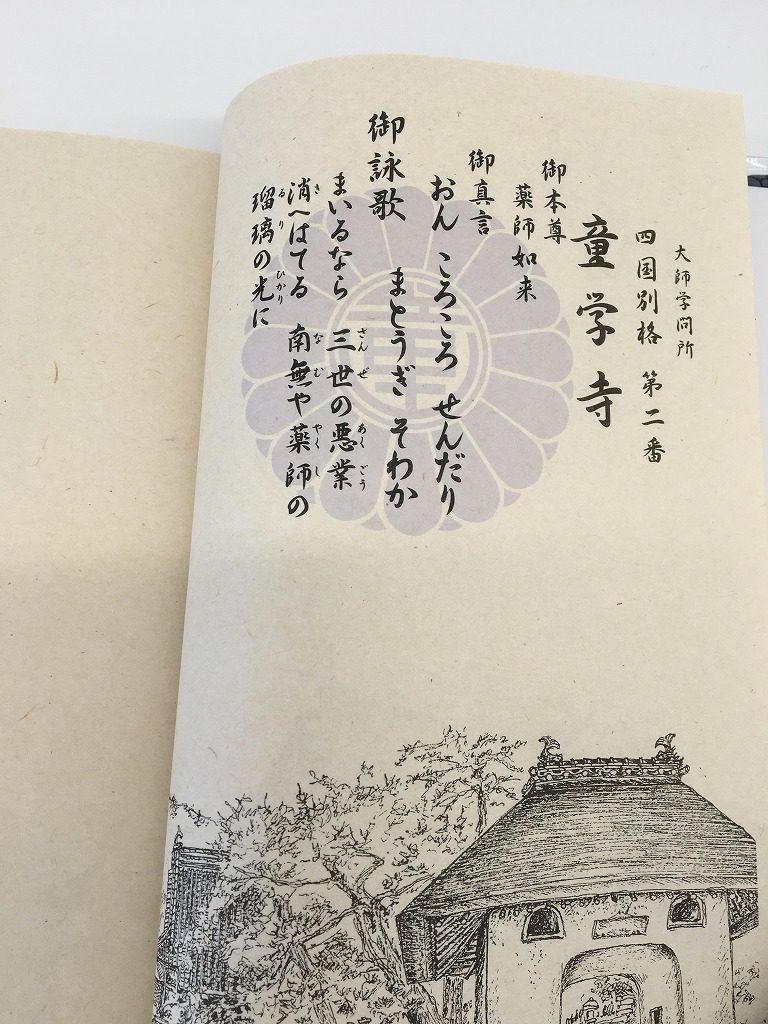 大師学問所
四国別格 第二番
童学寺
御本尊
薬師如来
御真言
おん ころころ せんだり
まとうぎ そわか
御詠歌
まいるなら 三世の悪業
消へはてる 南無や薬師の
瑠璃の光に